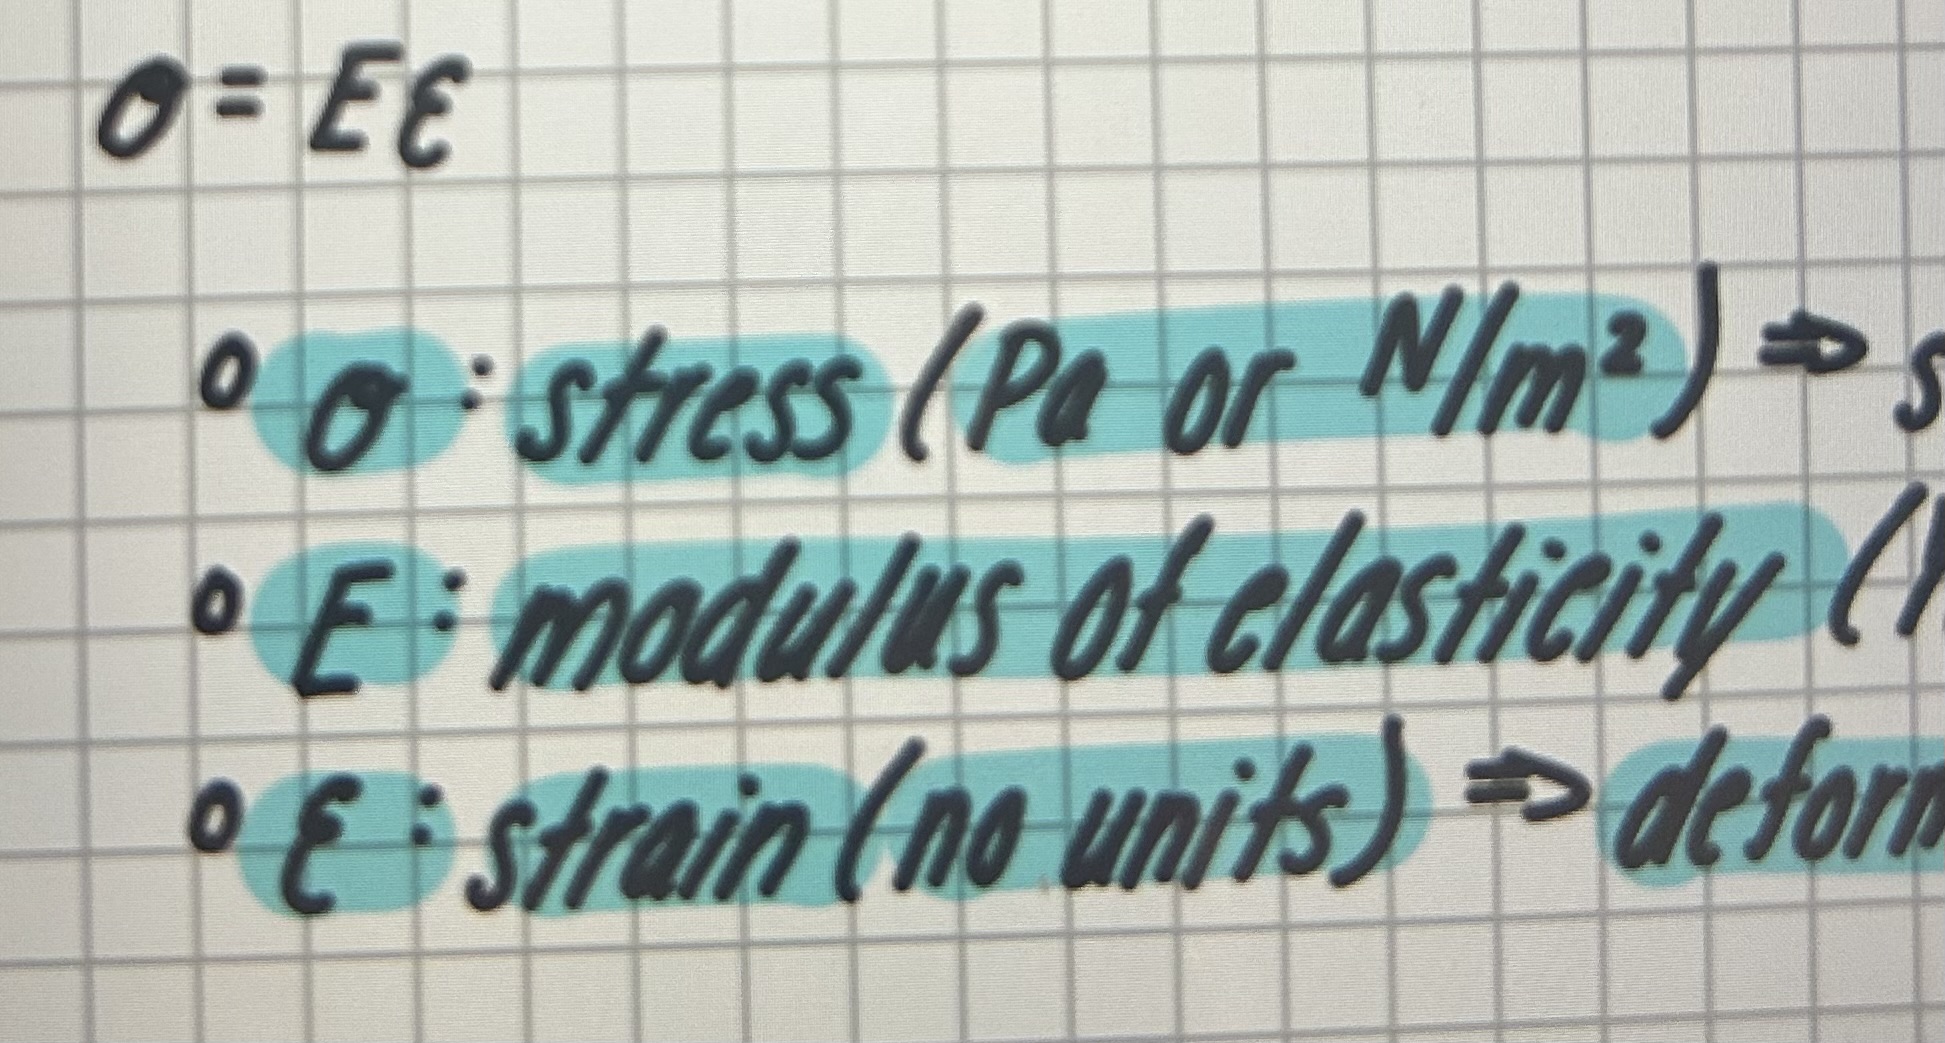 σ = Eε
σ : stress (Pa or N/m²) ⇒
E : modulus of elasticity (
ε : strain (no units) ⇒